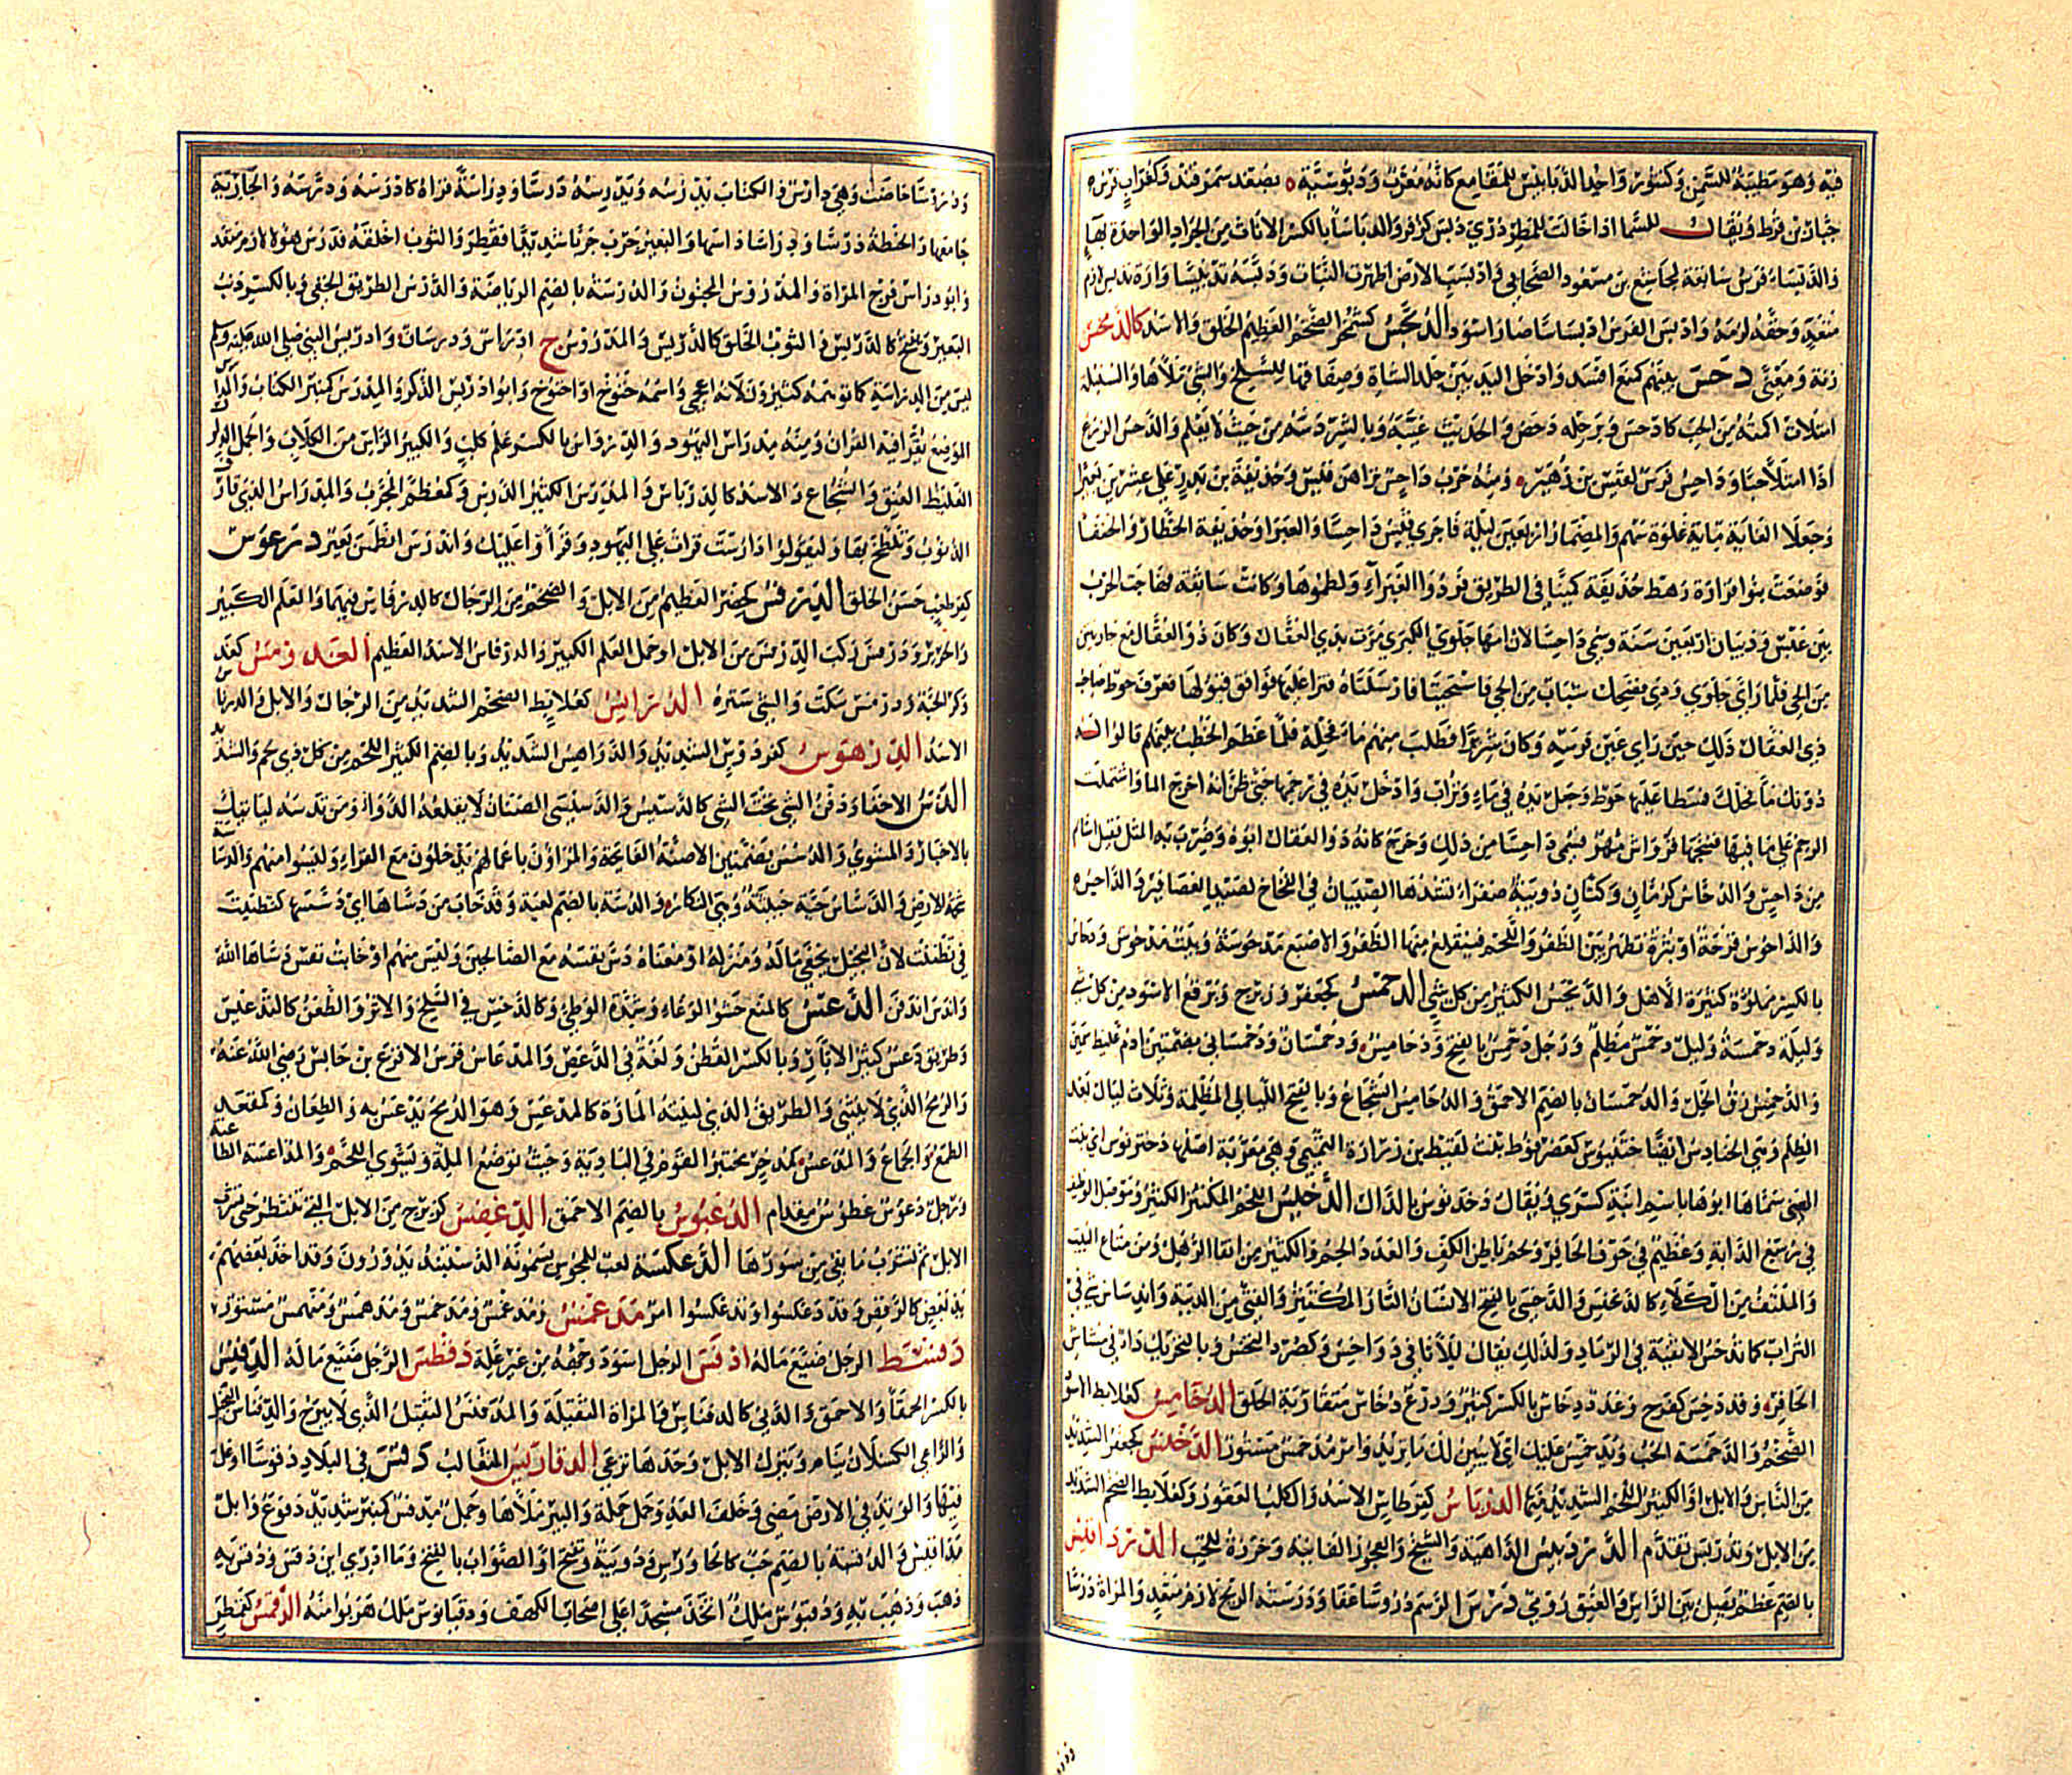 فيه وهو مطيبة للسمن وكتنور واحد الدبابيس للمقامع كانه معرب ودبوسية بصغد سمرقند وكغراب فرس
جبار بن قرط ويقال للسما اذا خالت للمطر دري دبس كزفر والدباساء بالكسر الاناث من الجراد الواحدة بهاء
والدبساء فرس سابقة لمجاشع بن مسعود الصحابي وادبست الارض اظهرت النبات ودبسه تدبيسا واراه فدبس لازم
متعد وخفه لدمه وادبس الفرس ادبساسا صار اسود الدبحس كشمخر الضخم العظيم الخلق والاسد كالدبخس
زنة ومعنى دحس بينهم كمنع افسد وادخل اليد بين جلد الشاة وصفاقها للسلخ والشي ملاه والسنبله
امتلات اكمته من الحب كادحس وبرجله دحص والحديث غيبه وبالشر دسه من حيث لا يعلم والدحس الزرع
اذا امتلا حبا وداحس فرس لقيس بن زهير ومنه حرب داحس تراهن قيس وحذيفة بن بدر على عشرين بعيرا
وجعلا الغاية ماية غلوة والمضمار اربعين ليلة فاجرى قيس داحسا والغبرا وحذيفة الخطار والحنفا
فوضعت بنو فزارة رهط حذيفة كمينا في الطريق فردوا الغبراء ولطموها وكانت سابقة فهاجت الحرب
بين عبس وذبيان اربعين سنة وسمي داحسا لان امه جلوى الكبرى مرت بذي العقال وكان ذو العقال مع جاريتين
من الحي فلما راى جلوى ودى فضحك شباب من الحي فاستحيتا فارسلتاه فنزا عليها فوافق قبولها فعرف حوط صاحب
ذي العقال ذلك حين راى عين فرسه وكان شريرا فطلب منهم ماء فحله فلما عظم الخطب بينهم قالوا له
دونك ماء فحلك فسطا عليها حوط وجعل يده في ماء وتراب وادخل يده في رحمها حتى ظن انه اخرج الما واشتملت
الرحم على ما فيها فنتجها قرواش مهرا فسمي داحسا من ذلك وخرج كانه ذو العقال ابوه وضرب به المثل فقيل اشام
من داحس والدحاس كرمان وكتان دويبة صفراء تشدها الصبيان في الفخاخ لصيد العصافير والداحس
والداحوس قرحة او بثرة تظهر بين الظفر واللحم فينقلع منها الظفر والاصبع مدحوسة وبيت مدحوس ودحاس
بالكسر مملوة كثيرة الاهل والديحس الكثير من كل شي الدحمس كجعفر وزبرج وبرقع الاسود من كل شي
وليلة دحمسة وليل دحمس مظلم ورجل دحمس بالفتح ودحامس ودحمسان ودحمساني بضمتين ادم غليظ سمين
والدحمس زق الخل والدحمسان بالضم الاحمق والدحامس الشجاع وبالفتح الليالي المظلمة وثلاث ليال بعد
الظلم وهي الحنادس ايضا ختنوس كعضرفوط بنت لقيط بن زرارة التميمي وهي معربة اصلها دخترنوس اي بنت
الهني سماها ابوها باسم ابنة كسرى ويقال دخدنوس بالدال الدخيس اللحم المكتنز الكثير وموصل الوظيف
في رسغ الدابة وعظيم في جوف الحافر ولحم باطن الكف والعدد الجم والكثير من انقا الرمل ومن متاع البيت
والملتف من الكلاء كالدخيس والدخس بالفتح الانسان التار المكتنز والفتى من الدببة واندساس شي في
التراب كما تدخس الاثفية في الرماد ولذلك يقال للاثافي دواخس وكصرد الدخس وبالتحريك داء في مشاش
الحافر وقد دخس كفرح وعدد دخاس بالكسر كثير ودرع دخاس متقاربة الحلق الدخامس كعلابط الاسود
الضخم والدخمسة الخب وندخمس عليك اي لا يبين لك ما تريد وامر مدخمس مستور الدخنس كجعفر الشديد
من الناس والابل او الكثير اللحم الشديد فيها الدرباس كقرطاس الاسد والكلب العقور وكعلابط الضخم الشديد
من الابل وتدربس تقدم الدردبيس الداهية والشيخ والعجوز الفانية وخرزة للحب الدرداقس
بالضم عظم يفصل بين الراس والعنق رومي درس الرسم دروسا عفا ودرسته الريح لازم متعد والمراة درسا
ودروسا حاضت وهي دارس والكتاب يدرسه ويدرسه درسا ودراسة قراه كادرسه ودرسه والجارية
جامعها والحنطة درسا ودراسا داسها والبعير جرب جربا شديدا فقطر والثوب اخلقه فدرس هو لازم متعد
وابو دراس فرج المراة والمدروس المجنون والدرسة بالضم الرياضة والدرس الطريق الخفي وبالكسر ذنب
البعير ويفتح كالدريس والثوب الخلق كالدريس والمدروس ج ادراس ودرسان وادريس النبي صلى الله عليه وسلم
ليس من الدراسة كما توهمه كثيرون لانه اعجمي واسمه خنوخ او احنوخ وابو ادريس الذكر والمدرس كمنبر الكتاب والمدراس
الموضع يقرا فيه القران ومنه مدراس اليهود والدرواس بالكسر علم كلب والكبير الراس من الكلاب والجمل الذلول
الغليظ العنق والشجاع والاسد كالدرباس والمدرس الكثير الدرس وكمعظم المجرب والمدارس الذي قارف
الذنوب وتلطخ بها وليقولوا دارست قرات على اليهود وقراوا عليك واندرس انطمس بعير درعوس
كفرطعب حسن الخلق الدرفس كحضجر العظيم من الابل والضخم من الرجال كالدرفاس فيهما والعلم الكبير
والحرير ودرفس ركب الدرفس من الابل او حمل العلم الكبير والدرفاس الاسد العظيم العدرمس كفد
وكرالحية ودرمس سكت والشي ستره الدرايس كعلابط الضخم الشديد من الرجال والابل والدرناس
الاسد الدرهوس كفردوس الشديد والدراهس الشديد وبالضم الكثير اللحم من كل ذي لحم والشديد
الدس الاخفاء ودفن الشي تحت الشي كالدسيس والدسيس الصنان لا يقلعه الدواء ومن تدسه لياتيك
بالاخبار والمشوي والدسس بضمتين الاصنة الفايحة والمراؤن باعمالهم يدخلون مع القراء وليسوا منهم والدساسة
شحمة الارض والدساس حية خبيثة وهي النكاز والدسة بالضم لعبة وقد خاب من دساها اي دسسها كتظنيت
في تظننت لان البخيل يخفي ماله ومنزله او معناه دس نفسه مع الصالحين وليس منهم او خابت نفس دساها الله
واندس اندفن الدعس كالمنع حشو الوعاء وشدة الوطي وكالدحس في السلخ والاثر والطعن كالتدعيس
وطريق دعس كثير الاثار وبالكسر القطن ولغة في الدعص والمدعاس فرس الاقرع بن حابس رضي الله عنه
والرمح الذي لا ينثني والطريق الذي لينته المارة كالمدعس وهو الرمح يدعس به والطعان وكمقعد
الطمع والجماع والمدعس كمدخر مختبز القوم في البادية وحيث توضع الملة ويشوى اللحم والمداعسة المطاعنة
ورجل دعوس غطوس مقدام الدغبوس بالضم الاحمق الدعفس كزبرج من الابل التي تنتظر حتى تشرب
الابل ثم تشرب ما بقي من سورها الدعكسة لعب للمجوس يسمونه الدستبند يدورون وقد اخذ بعضهم
يد بعض كالرقص وقد دعكسوا وتدعكسوا امر مدغمس ومدغمس ومدخمس ومدهمس ومنهمس مستور
دفنسط الرجل ضيع ماله ادفس الرجل اسود وجهه من غير علة دفطس الرجل ضيع ماله الدفنس
بالكسر الحمقا والاحمق والدني كالدفناس والمراة الثقيلة والمدفنس الثقيل الذي لا يبرح والدفناس البخيل
والراعي الكسلان ينام ويترك الابل وحدها ترعى الدقاريس الثعالب دقس في البلاد دقوسا اوغل
فيها والوتد في الارض مضى وخلف العدو حمل حملة والبير ملاها وجمل مدقس كمنبر شديد دفوع وابل
مداقيس والدقسة بالضم حب كالجاورس ودويبة وتفتح او الصواب بالفتح وما ادري اين دقس ودقس به
ذهب وذهب به ودقيوس ملك اتخذ مسجدا على اصحاب الكهف ودقيانوس ملك هربوا منه الدقمس كقمطر